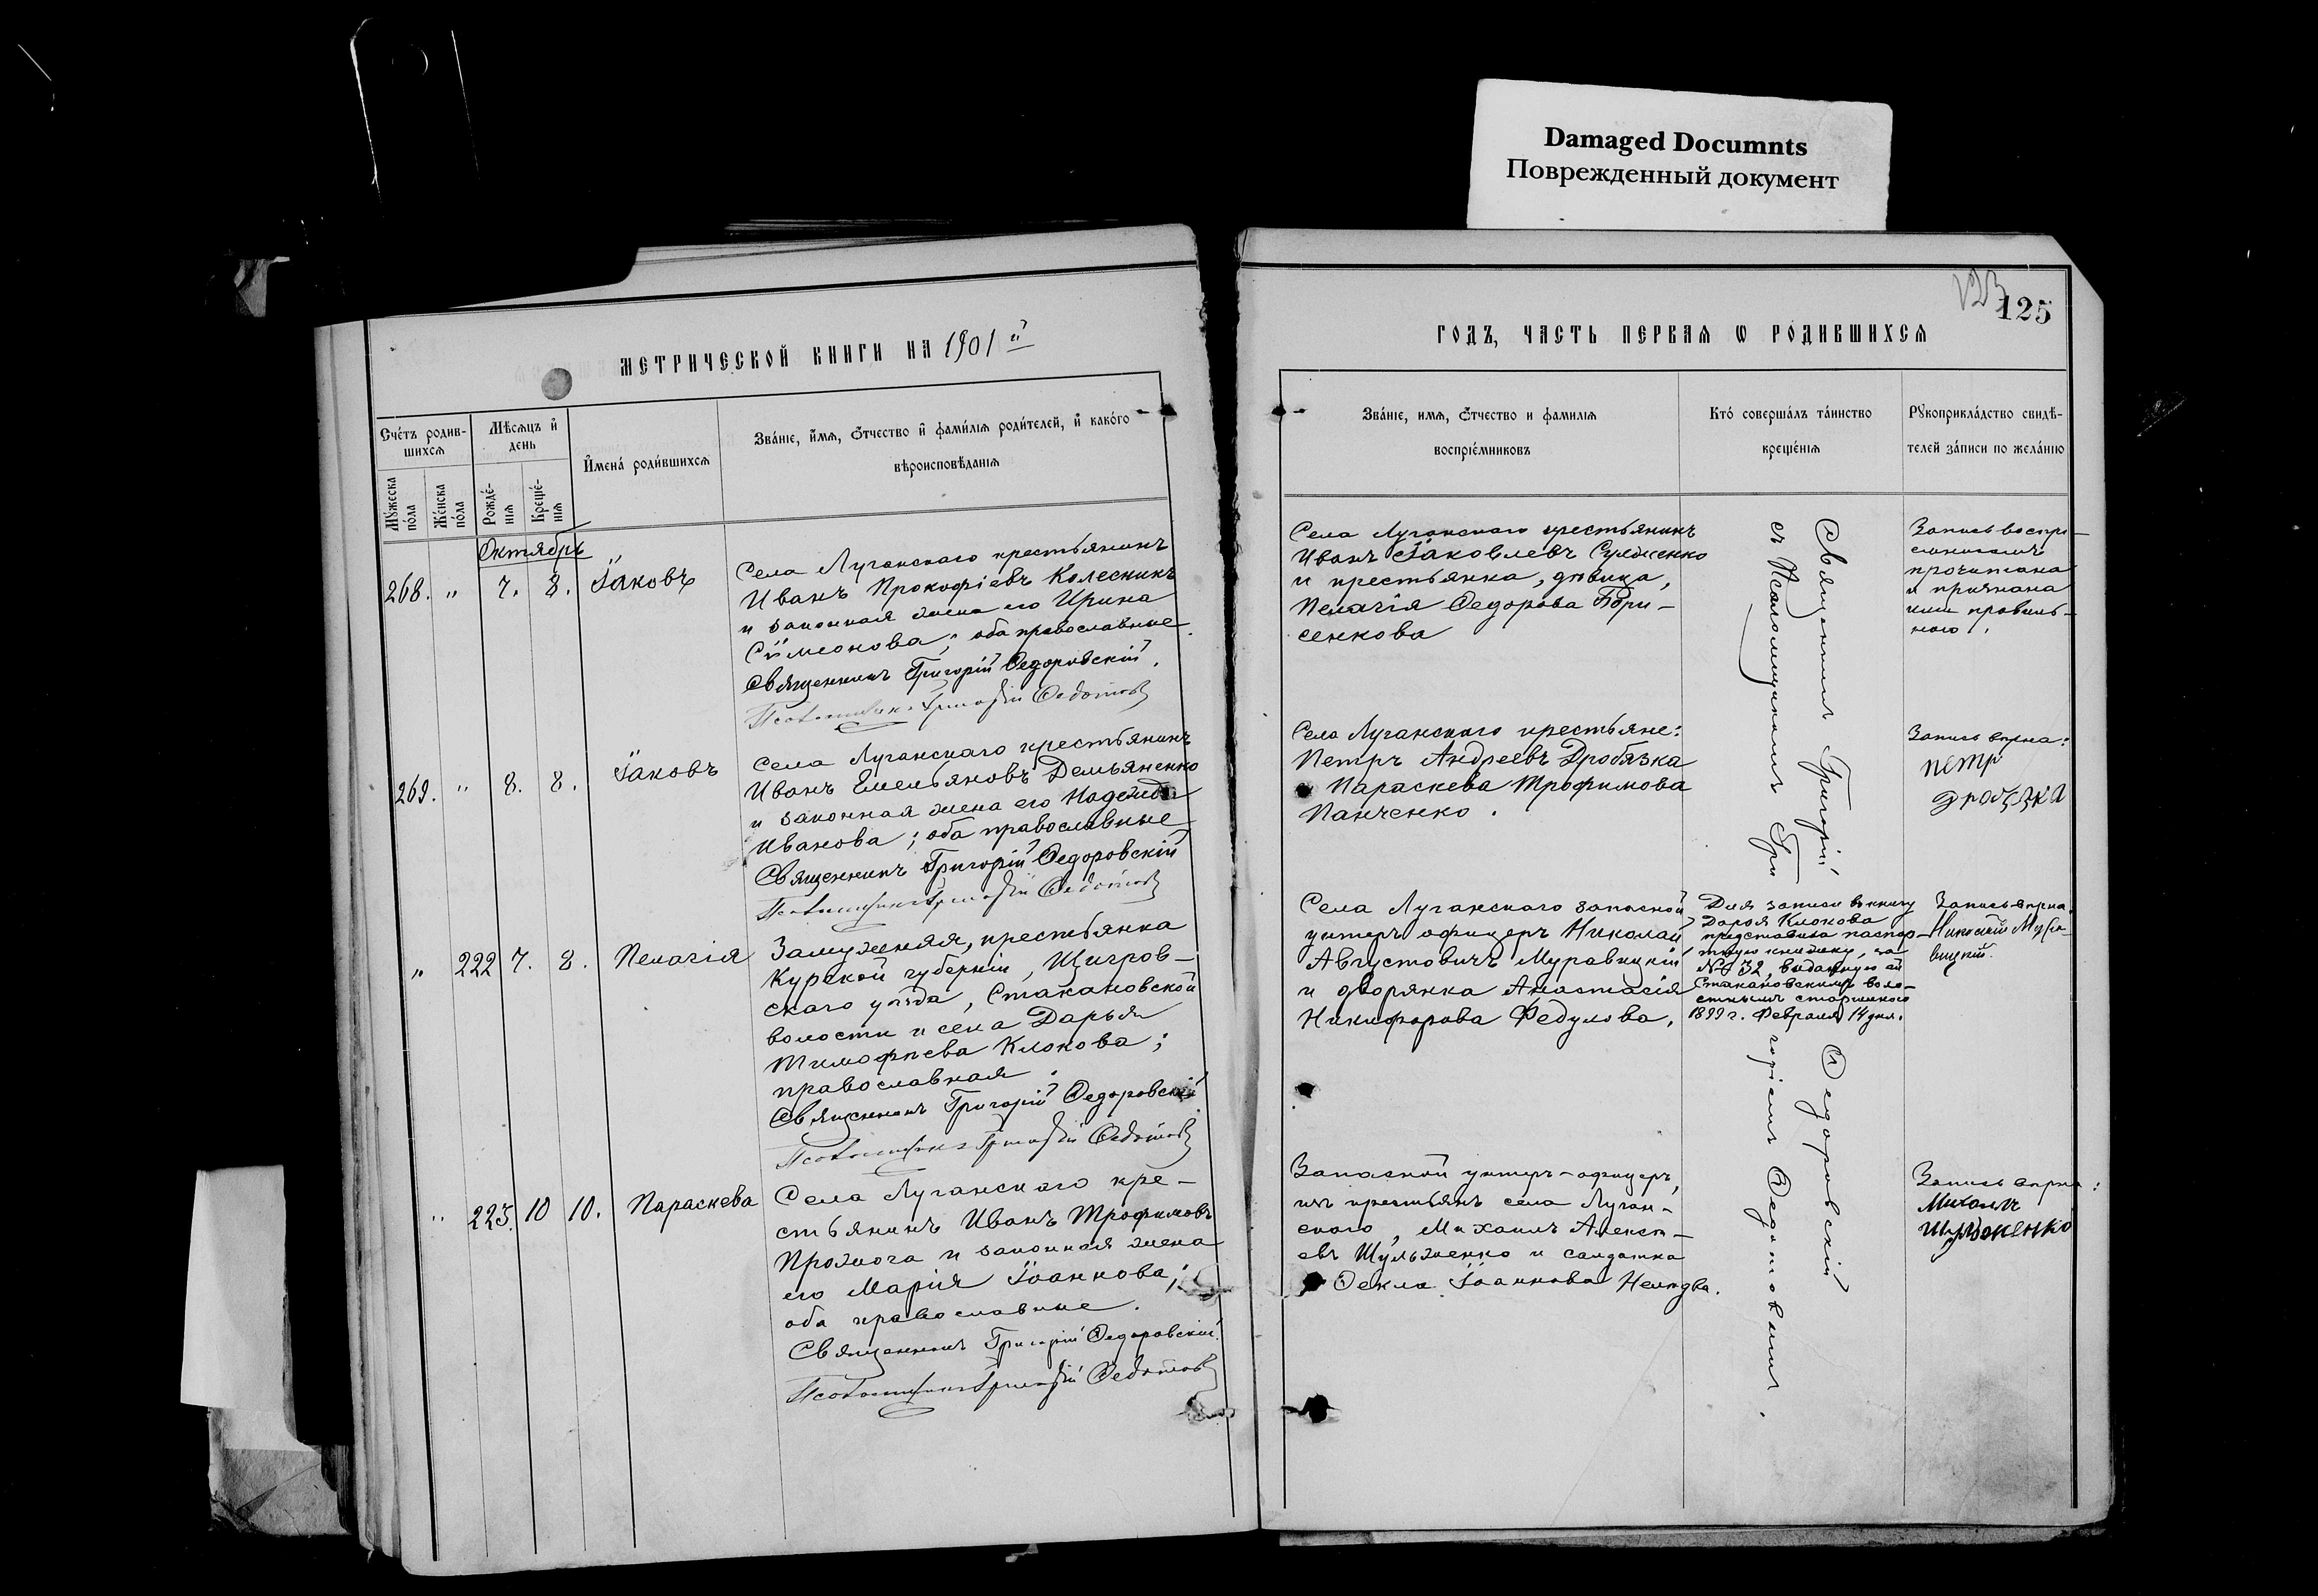 Damaged Documnts
Поврежденный документ
123
125
МЕТРИЧЕСКОЙ КНИГИ НА 1901й
ГОДЪ, ЧАСТЬ ПЕРВАѦ Ѡ РОДИВШИХСѦ
Счéтъ родив-
шихсѧ
Мѣсѧцъ и
день
Имена́ роди́вшихсѧ
Зва́нїе, и́мѧ, ѻ́тчество и фами́лїѧ роди́телей, и како́го
вѣроисповѣ́данїѧ
Му́жеска
по́ла
Же́нска
по́ла
Рожде́-
нїѧ
Креще́-
нїѧ
Зва́нїе, имѧ, ѻ́тчество и фамилїѧ
воспрїе́мниковъ
Кто́ соверша́лъ та́инство
креще́нїѧ
Рꙋкоприкла́дство свидѣ́-
телей за́писи по жела́нїю
Октябрь
268. " 7. 8. Іаковъ
Села Луганскаго крестьянинъ
Иванъ Прокофіевъ Колесникъ
и законная жена его Ирина
Сѵмеонова; оба православные.
Священникъ Григорій Ѳедоровскій.
Псаломщикъ Григорій Ѳедотовъ
Села Луганскаго крестьянинъ
Иванъ Іаковлевъ Сулженко
и крестьянка, дѣвица,
Пелагія Ѳедорова Бори-
сенкова
Запись воспрі-
емниками
прочитана
и признана
ими правиль-
ною.
269. " 8. 8. Іаковъ
Села Луганскаго крестьянинъ
Иванъ Емельяновъ Демьяненко
и законная жена его Надежда
Иванова; оба православные
Священникъ Григорій Ѳедоровскій
Псаломщикъ Григорій Ѳедотовъ
Села Луганскаго крестьяне:
Петръ Андреевъ Дробязка
и Параскева Трофимова
Панченко.
Запись вѣрна:
Петр
Дробязка
" 222 7. 8. Пелагія
Замужняя, крестьянка
Курской губерніи, Щигров-
скаго уѣзда, Стакановской
волости и села Дарья
Тимофѣева Клокова;
православная.
Священникъ Григорій Ѳедоровскій
Псаломщикъ Григорій Ѳедотовъ
Села Луганскаго запасной
унтеръ офицеръ Николай
Августовичъ Муравицкій
и дворянка Анастасія
Никифорова Федулова.
Для записи въ книгу
Дарья Клокова
представила паспор-
тную книжку, за
№ 32, выданную ей
Стакановскимъ воло-
стнымъ старшиною
1899 г. Февраля 14 дня.
Запись вѣрна.
Николай Мура-
вицкій.
" 223. 10 10. Параскева
Села Луганскаго кре-
стьянинъ Иванъ Трофимовъ
Прожога и законная жена
его Марія Іоаннова;
оба православные.
Священникъ Григорій Ѳедоровскій.
Псаломщикъ Григорій Ѳедотовъ
Запасной унтеръ-офицеръ,
изъ крестьянъ села Луган-
скаго, Михаилъ Алексѣ-
евъ Шульженко и солдатка
Ѳекла Іоаннова
Запись вѣрна:
Михаилъ
Шульженко
Священникъ Григорій Ѳедоровскій
съ Псаломщикомъ Гри
горіемъ Ѳедотовымъ.